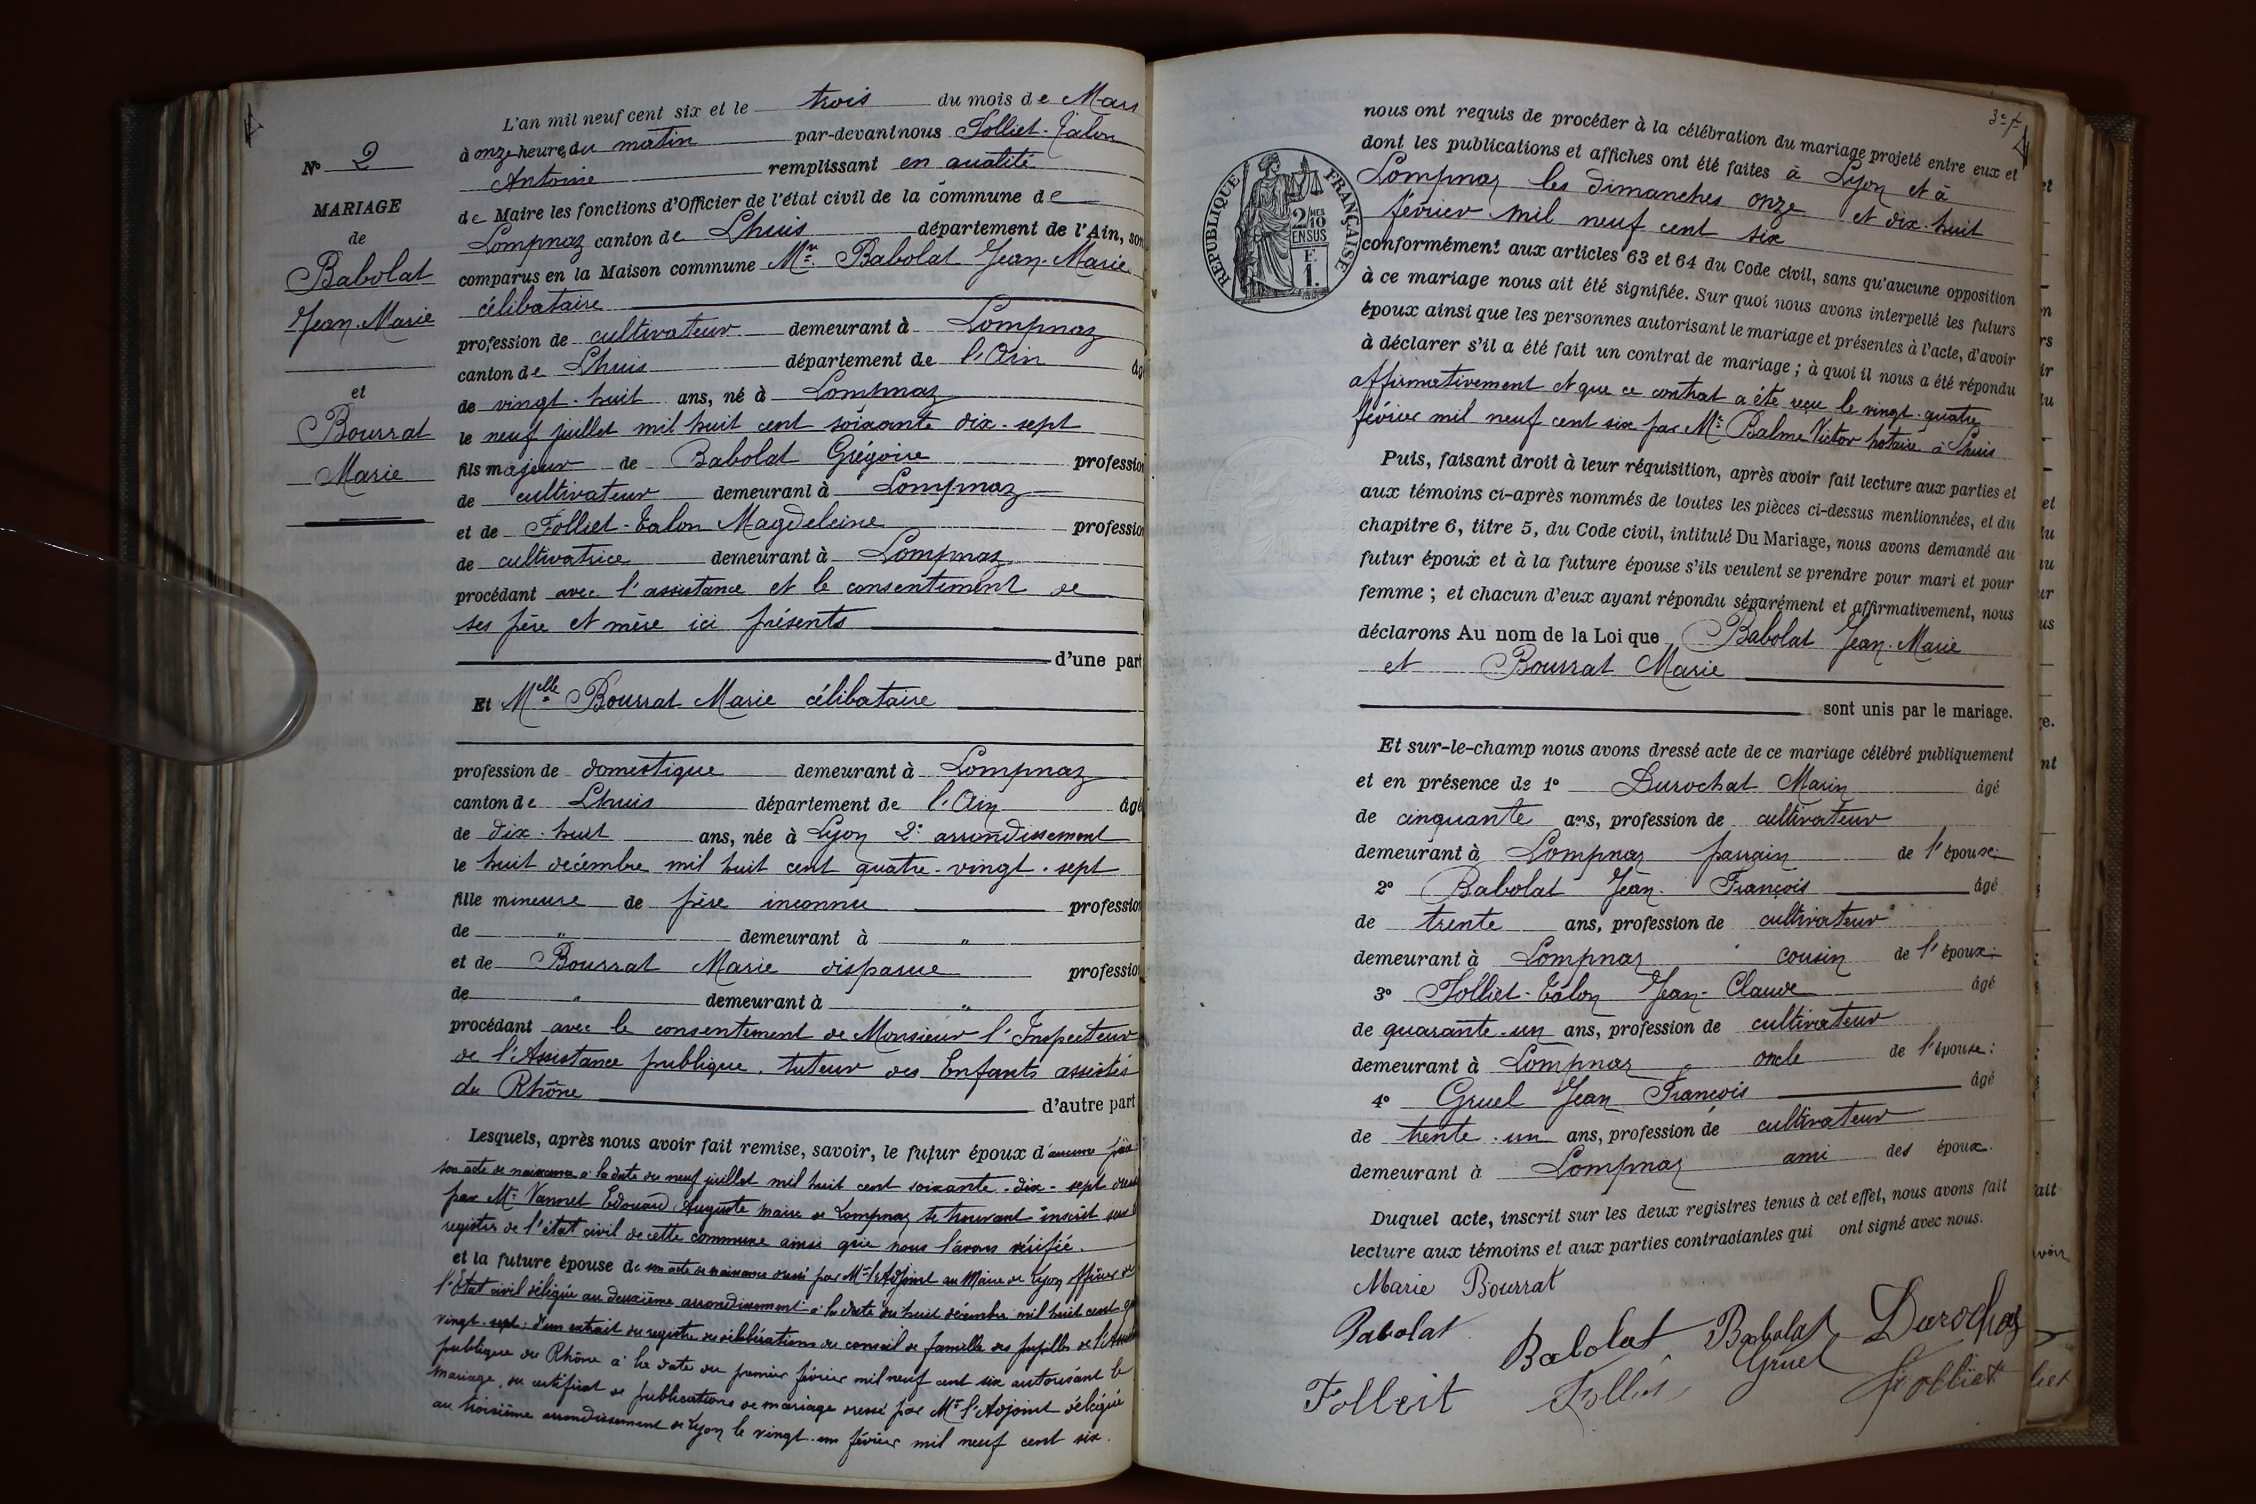 N° 2
MARIAGE
de
Babolat
Jean-Marie
et
Bourrat
Marie
L'an mil neuf cent six et le trois du mois de Mars
à onze heures du matin par-devant nous Folliet-Talon
Antoine remplissant en qualité
de Maire les fonctions d'Officier de l'état civil de la commune de
Lompnaz canton de Lhuis département de l'Ain, son
comparus en la Maison commune Mr Babolat Jean-Marie
célibataire
profession de cultivateur demeurant à Lompnaz
canton de Lhuis département de l'Ain âgé
de vingt-huit ans, né à Lompnaz
le neuf juillet mil huit cent soixante dix-sept
fils majeur de Babolat Grégoire profession
de cultivateur demeurant à Lompnaz
et de Folliet-Talon Magdeleine profession
de cultivatrice demeurant à Lompnaz
procédant avec l'assistance et le consentement de
ses père et mère ici présents
d'une part
Et Melle Bourrat Marie célibataire
profession de domestique demeurant à Lompnaz
canton de Lhuis département de l'Ain âgé
de dix-huit ans, née à Lyon 2e arrondissement
le huit décembre mil huit cent quatre-vingt-sept
fille mineure de père inconnu profession
de " demeurant à "
et de Bourrat Marie disparue profession
de " demeurant à "
procédant avec le consentement de Monsieur l'Inspecteur
de l'Assistance publique, tuteur des Enfants assistés
du Rhône d'autre part
Lesquels, après nous avoir fait remise, savoir, le futur époux d'aucune pièce
son acte de naissance à la date du neuf juillet mil huit cent soixante-dix-sept dressé
par Mr Vannet Edouard Auguste maire de Lompnaz se trouvant inscrit sur
registres de l'état civil de cette commune ainsi que nous l'avons vérifié.
et la future épouse de son acte de naissance dressé par Mr l'Adjoint au Maire de Lyon officier de
l'Etat civil délégué au deuxième arrondissement à la date du huit décembre mil huit cent
vingt-sept; d'un extrait du registre des délibérations du conseil de famille des pupilles de l'
publique du Rhône à la date du premier février mil neuf cent six autorisant le
mariage, du certificat de publications de mariage dressé par Mr l'Adjoint délégué
au troisième arrondissement de Lyon le vingt-un février mil neuf cent six.
RÉPUBLIQUE FRANÇAISE
2/10
EN SUS
1.
nous ont requis de procéder à la célébration du mariage projeté entre eux et
dont les publications et affiches ont été faites à Lyon et à
Lompnaz les dimanches onze et dix-huit
février mil neuf cent six
conformément aux articles 63 et 64 du Code civil, sans qu'aucune opposition
à ce mariage nous ait été signifiée. Sur quoi nous avons interpellé les futurs
époux ainsi que les personnes autorisant le mariage et présentes à l'acte, d'avoir
à déclarer s'il a été fait un contrat de mariage; à quoi il nous a été répondu
affirmativement et que ce contrat a été reçu le vingt-quatre
février mil neuf cent six par Me Balme Victor notaire à Lhuis
Puis, faisant droit à leur réquisition, après avoir fait lecture aux parties et
aux témoins ci-après nommés de toutes les pièces ci-dessus mentionnées, et du
chapitre 6, titre 5, du Code civil, intitulé Du Mariage, nous avons demandé au
futur époux et à la future épouse s'ils veulent se prendre pour mari et pour
femme; et chacun d'eux ayant répondu séparément et affirmativement, nous
déclarons Au nom de la Loi que Babolat Jean-Marie
et Bourrat Marie
sont unis par le mariage.
Et sur-le-champ nous avons dressé acte de ce mariage célébré publiquement
et en présence de 1° Durochat Marin âgé
de cinquante ans, profession de cultivateur
demeurant à Lompnaz parrain de l'épouse
2° Babolat Jean-François âgé
de trente ans, profession de cultivateur
demeurant à Lompnaz cousin de l'époux
3° Folliet-Talon Jean-Claude âgé
de quarante-un ans, profession de cultivateur
demeurant à Lompnaz oncle de l'épouse:
4° Gruel Jean François âgé
de trente-un ans, profession de cultivateur
demeurant à Lompnaz ami des époux.
Duquel acte, inscrit sur les deux registres tenus à cet effet, nous avons fait
lecture aux témoins et aux parties contractantes qui ont signé avec nous.
Marie Bourrat
Babolat Babolat Babolat Durochat
Gruel
Folleit Folliet Folliet